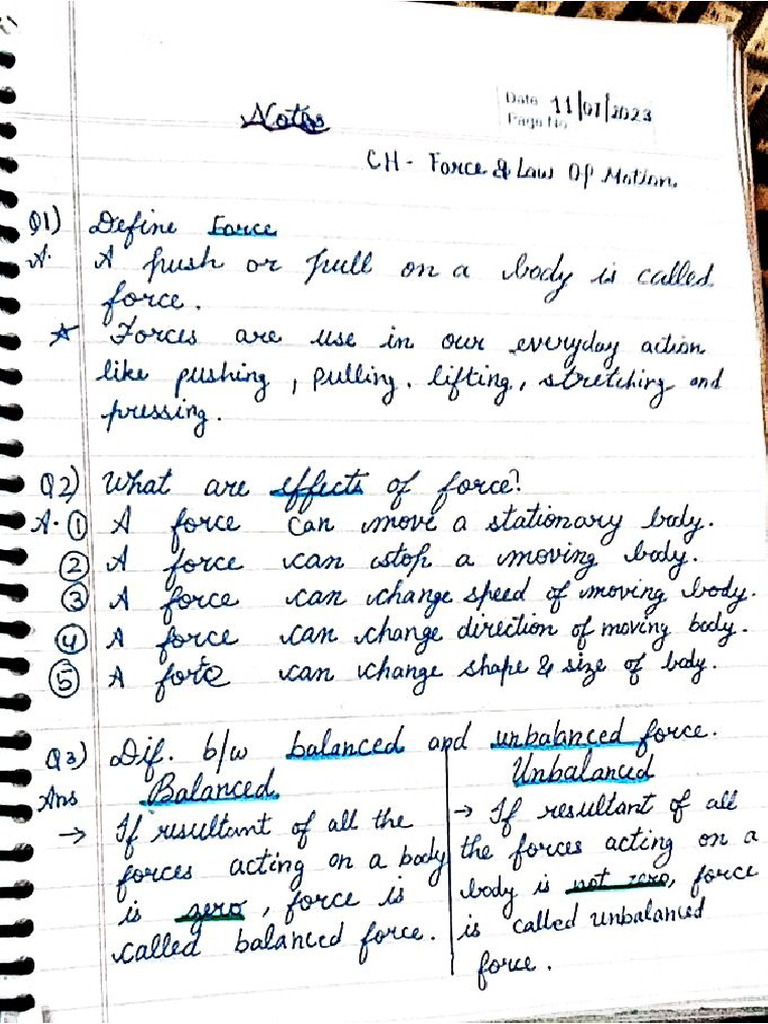 Notes
Date 11/07/2023
Page No
CH - Force & Law Of Motion.
Q1) Define Force
A. A push or pull on a body is called
force.
☆ Forces are use in our everyday action
like pushing, pulling, lifting, stretching and
pressing.
Q2) What are effects of force?
A. ① A force can move a stationary body.
② A force can stop a moving body.
③ A force can change speed of moving body.
④ A force can change direction of moving body.
⑤ A force can change shape & size of body.
Q3) Dif. b/w balanced and unbalanced force.
Ans Balanced
→ If resultant of all the
forces acting on a body
is zero, force is
called balanced force.
Unbalanced
→ If resultant of all
the forces acting on a
body is not zero, force
is called unbalanced
force.